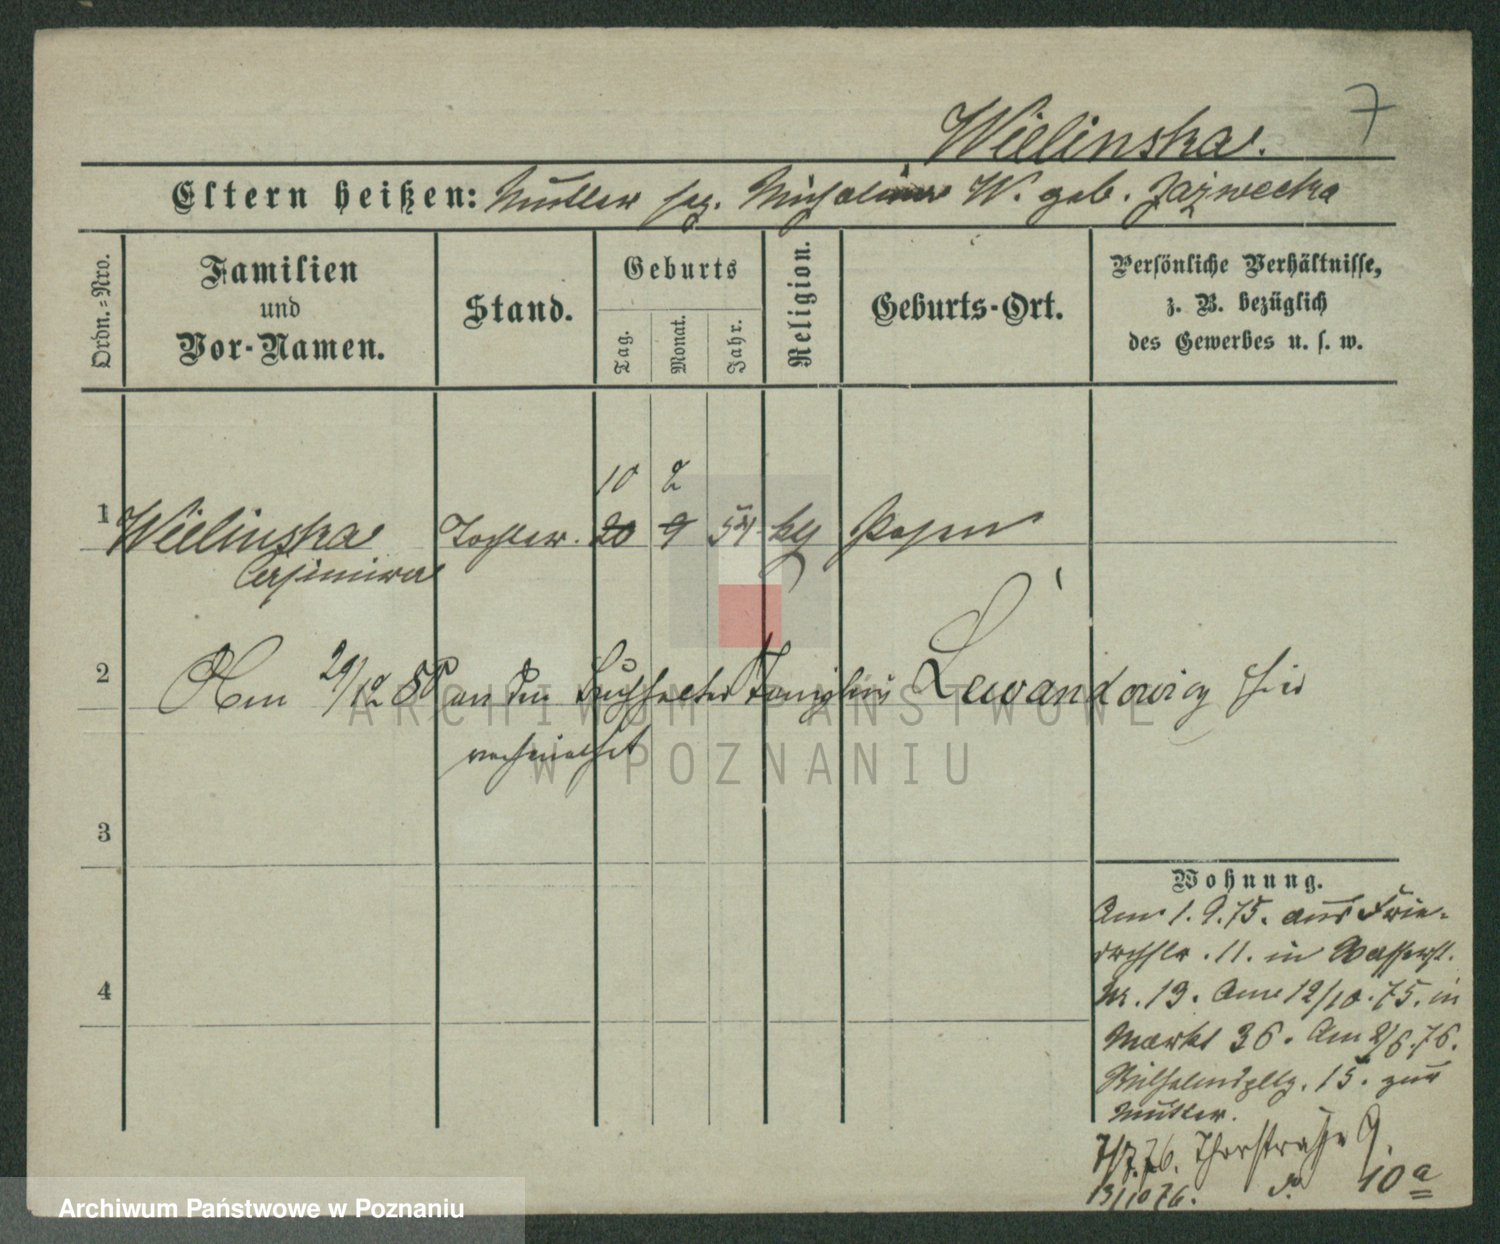 7
Wielinska.
Eltern heißen: Mutter sep. Michalina W. geb. Jazwecka
Ordn.-Nro.
Familien
und
Vor-Namen.
Stand.
Geburts
Tag.
Monat.
Jahr.
Religion.
Geburts-Ort.
Persönliche Verhältnisse,
z. B. bezüglich
des Gewerbes u. s. w.
10 2
1 Wielinska Tochter. 20 9 54 kg Posen
Casimira
2 Am 29/12 80 an den Buchhalter Lewandowicz hier
verheirathet
3
4
Wohnung.
Am 1.9.75. aus Frie-
drchstr. 11. in Wasserst.
Nr. 13. Am 12/10.75. in
Markt 36. Am 2/6.76.
Wilhelmspltz. 15. zur
Mutter.
7/7.76. Thorstraße 9.
13/10 76. do 10a
ARCHIWUM PAŃSTWOWE
W POZNANIU
Archiwum Państwowe w Poznaniu